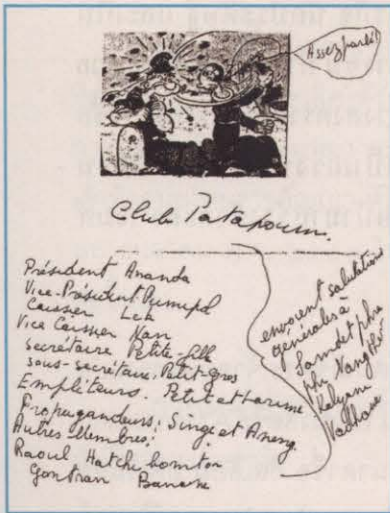 Assez parlé!
Club Patapoum.
Président Ananda
Vice-Président Pumipol
Caissier Lek
Vice Caissier Nan
secrétaire Petite-fille
sous-secrétaire: Petit gros
Empléteurs. Petit et
Propagandeurs: Singe et Aneng
Autres Membres:
Raoul Hatchi bombom
Gontran Banane
envoient salutations
générales à
Samdet phra
phi Nang
Kalyani
Vadhana